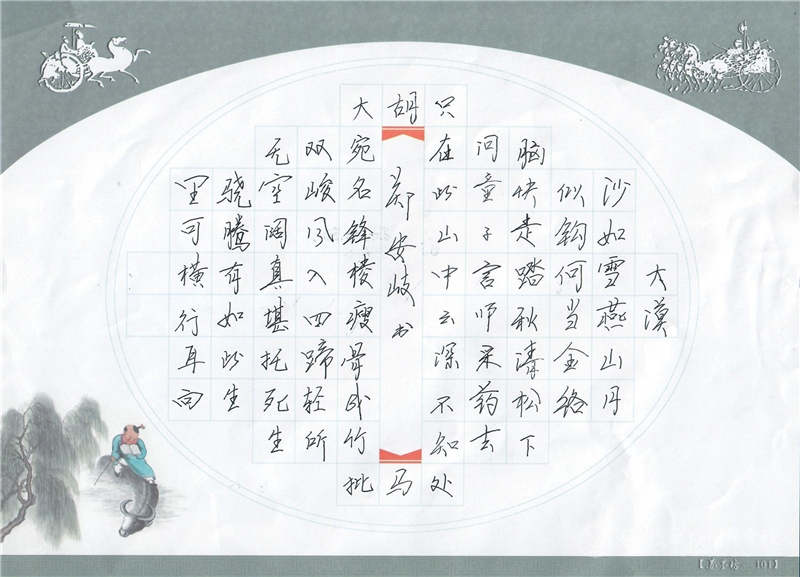 大漠
沙如雪燕山月
似钩何当金络
脑快走踏秋清松下
问童子言师采药去
只在此山中云深不知处
胡郑安岐书马
大宛名锋棱瘦骨成竹批
双峻风入四蹄轻所
无空阔真堪托死生
骁腾有如此生
里可横行耳向